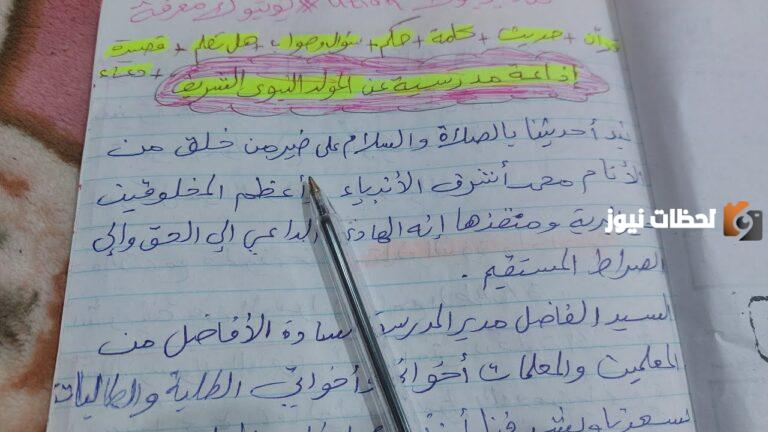 قرآن + حديث + كلمة + حكم + سؤال وجواب + هل تعلم + قصيدة
+ دعاء
إذاعة مدرسية عن المولد النبوي الشريف
نبدأ حديثنا بالصلاة والسلام على خير من خلق من
الأنام محمد أشرف الأنبياء أعظم المخلوقين
ومنقذها إنه الهادي الداعي إلى الحق وإلى
الصراط المستقيم.
السيد الفاضل مدير المدرسة السادة الأفاضل من
المعلمين والمعلمات أخواني وأخواتي الطلبة والطالبات
لحظات نيوز